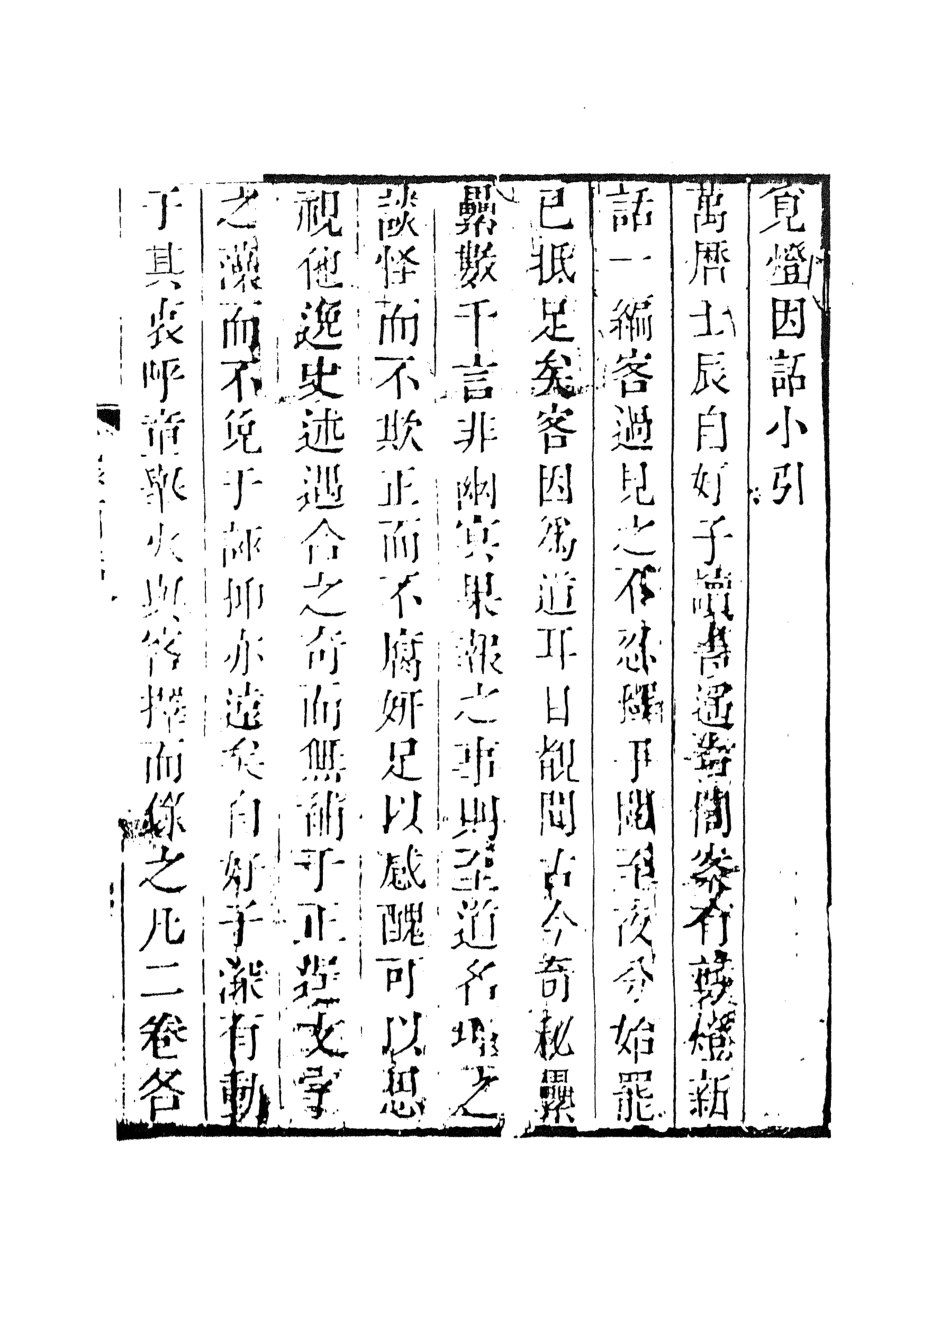 覓燈因話小引
萬曆壬辰自好子讀書遥青閣案有剪燈新
話一編客過見之不忍釋手閱至夜分始罷
已抵足矣客因爲道耳目覩聞古今奇秘纍
纍數千言非幽冥果報之事則至道名理之
談怪而不欺正而不腐妍足以感醜可以思
視他逸史述遇合之奇而無補于正逞文字
之藻而不免于誣抑亦遠矣自好子深有動
于其衷呼童舉火與客擇而錄之凡二卷名